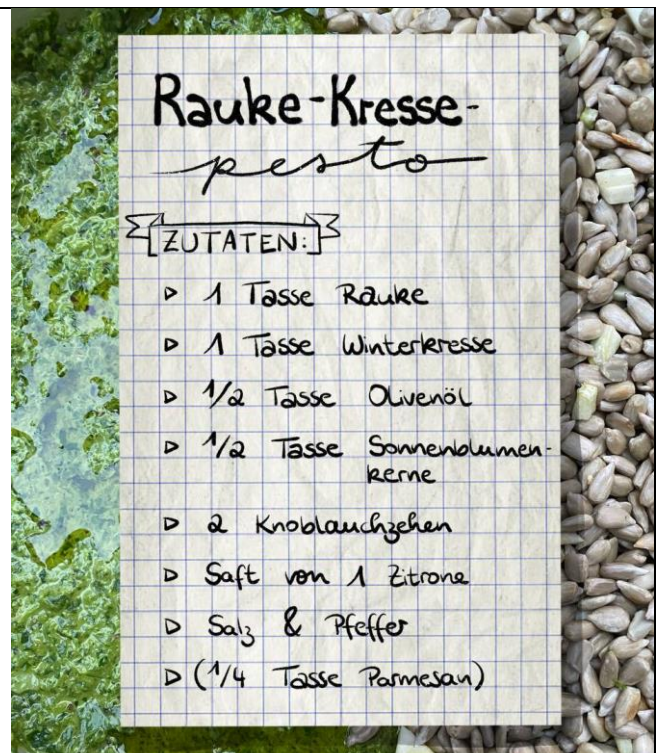 Rauke-Kresse-
pesto
ZUTATEN:
▷ 1 Tasse Rauke
▷ 1 Tasse Winterkresse
▷ 1/2 Tasse Olivenöl
▷ 1/2 Tasse Sonnenblumen-
kerne
▷ 2 Knoblauchzehen
▷ Saft von 1 Zitrone
▷ Salz & Pfeffer
▷ (1/4 Tasse Parmesan)